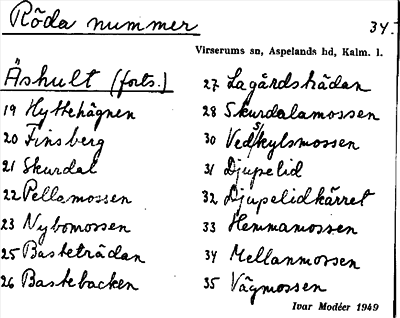 Röda nummer 34.
Virserums sn, Aspelands hd, Kalm. l.
Åshult (forts.)
19 Hyttehägnen
20 Finsberg
21 Skurdal
22 Pellamossen
23 Nybomossen
25 Basteträdan
26 Bastebacken
27 Lagårdsträdan
28 Skurdalamossen
30 Vedskylsmossen
31 Djupelid
32 Djupelidkärret
33 Hemmamossen
34 Mellanmossen
35 Vägmossen
Ivar Modéer 1949